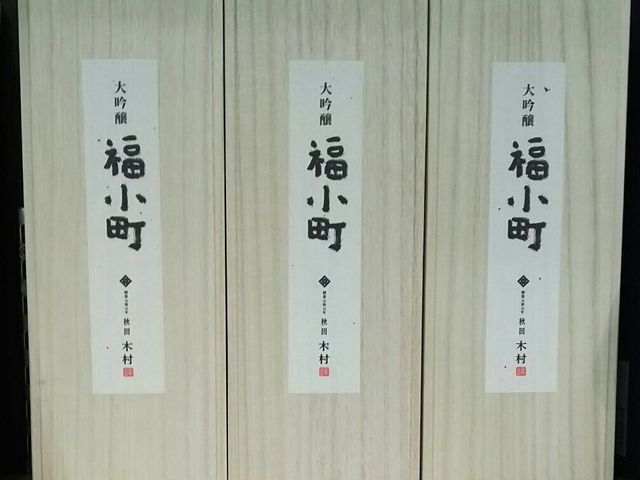 大吟醸
福小町
秋田
木村
大吟醸
福小町
秋田
木村
大吟醸
福小町
秋田
木村